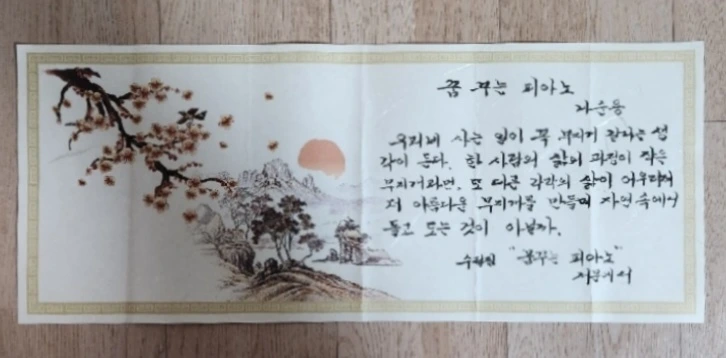 꿈 꾸는 피아노
라순용
우리네 사는 일이 꼭 무지개 같다는 생
각이 든다. 한 사람의 삶의 과정이 작은
무지개라면, 또 다른 각각의 삶이 어우러져
더 아름다운 무지개를 만들며 자연속에서
돌고 도는 것이 아닐까.
수필집 "꿈꾸는 피아노"
에서